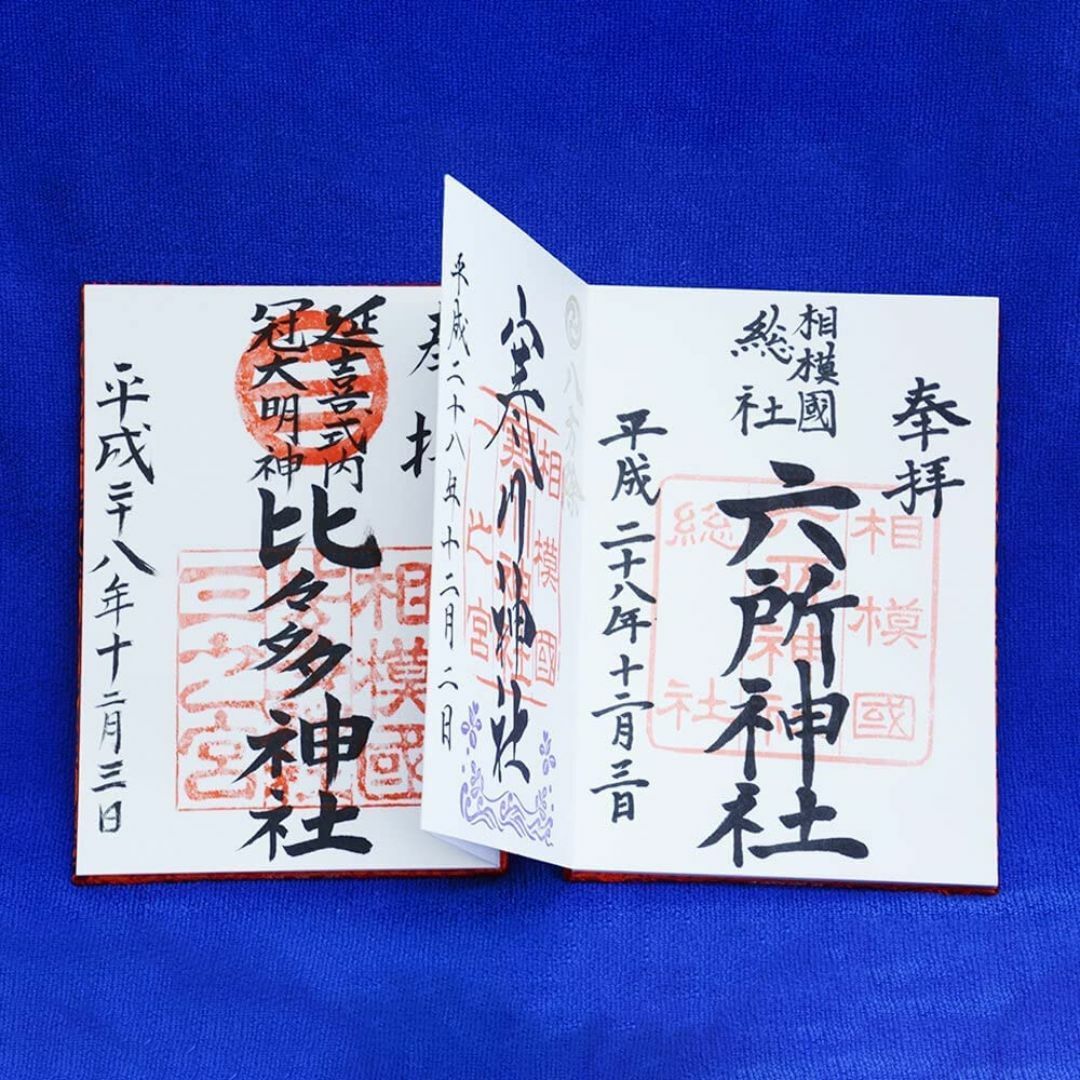 奉拝
相模國
総社
六所神社
平成二十八年十二月三日
相模國
総社
八方除
寒川神社
平成二十八年十二月二日
相模國
一之宮
寒川神社
奉拝
延喜式内
冠大明神
比々多神社
平成二十八年十二月三日
相模國
三之宮